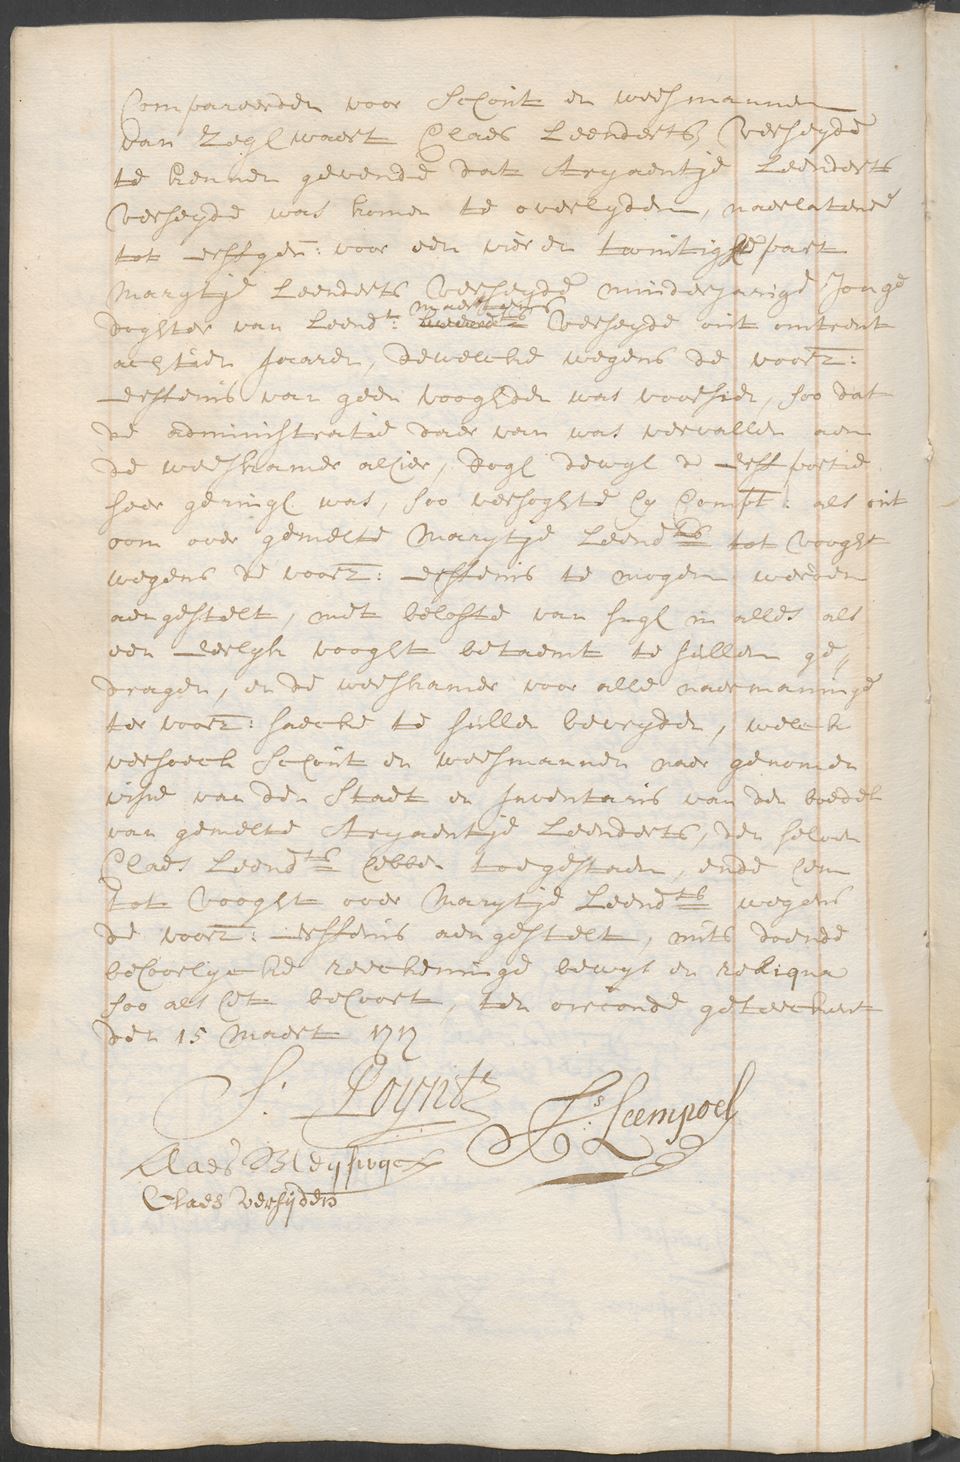 Compareerden voor Schout en weesmannen
van Zeghwaert Claes Leenderts Verheyde
te kennen gevende dat Aryaentje Leenderts
Verheyde was komen te overlyden, naerlatende
tot erffgen: voor een vier en twintighste part
Marytje Leenderts Verheyde minderjarige Jonge
Maertens
doghter van Leendt: Verheyde out omtrent
achtien jaaren, dewelcke wegens de voorz:
erffenis van geen vooghden was voorsien, soo dat
de administratie daer van was vervallen aen
de weeskamer alhier, dogh dewyl de erffportie
seer geringh was, soo versoghte hy Compt: als
oom over gemelte Marytje Leendts tot vooght
wegens de voorz: erffenis te mogen werden
aengestelt, met belofte van sigh in alles als
een eerlyk vooght betaemt te sullen ge„
dragen, en de weeskamer voor alle naermaninge
ter voorz: saecke te sullen bevryden, welck
versoeck Schout en weesmannen naer genomen
visie van den Staet en Inventaris van den boedel
van gemelte Aryaentje Leenderts, den selven
Claes Leendts hebben toegestaen, ende hem
tot vooght over Marytje Leendts wegens
de voorz: erffenis aengestelt, mits doende
behoorlycke reeckeninge bewys en reliqua
soo als het behoort, ten oirconde geteeckent
den 15 Maert 1717
S. Poynts
Ls. Leempoel
Claes
Claes Verhijden